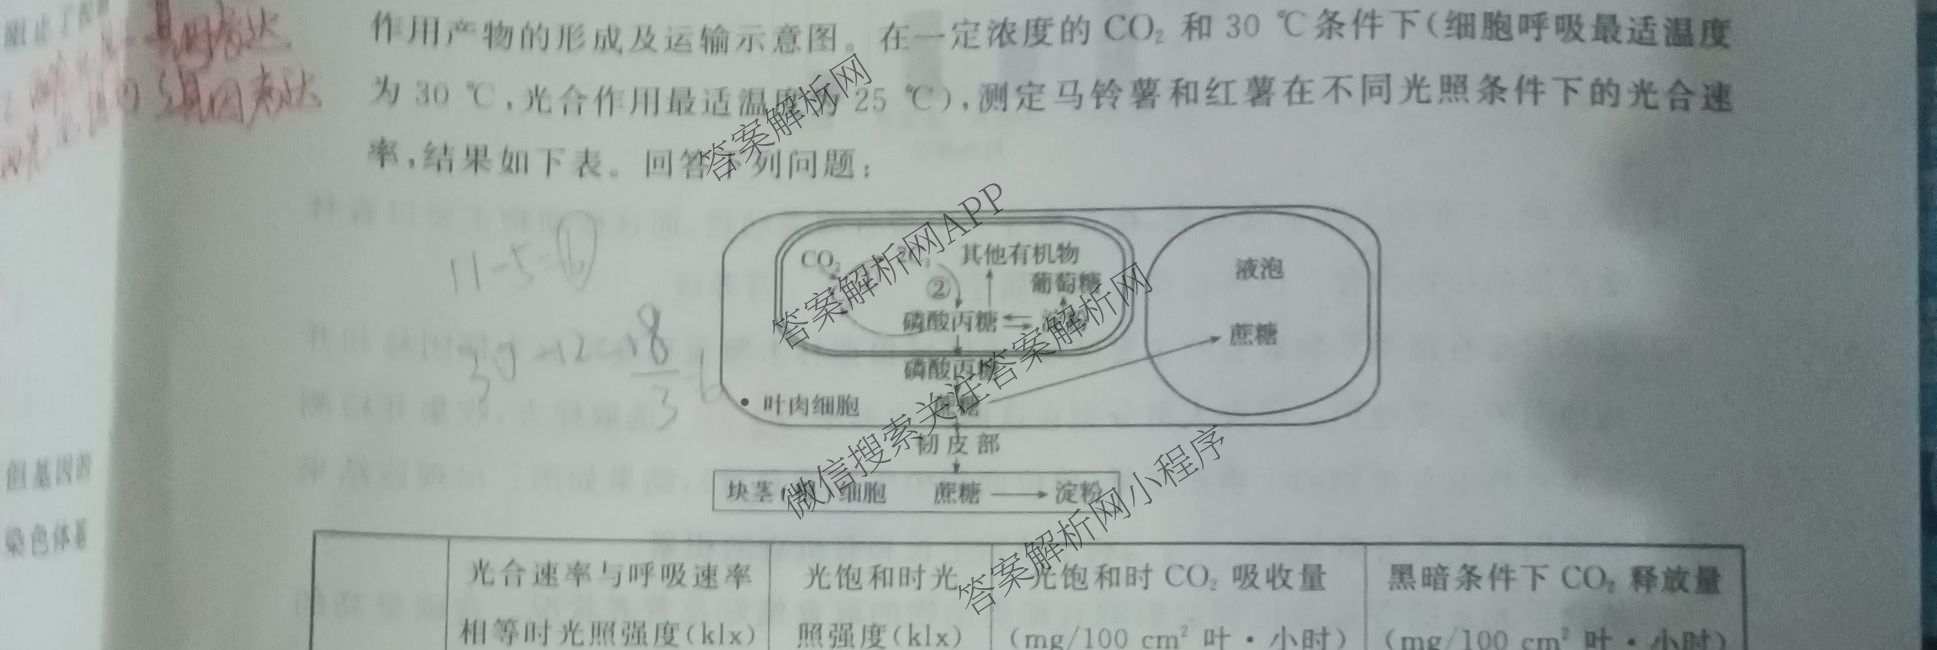 阻止了
基因表达
基因表达
作用产物的形成及运输示意图。在一定浓度的 CO₂ 和 30 ℃条件下(细胞呼吸最适温度
为 30 ℃,光合作用最适温度为 25 ℃),测定马铃薯和红薯在不同光照条件下的光合速
率,结果如下表。回答下列问题:
11-5=6
30-12=18
3
6
CO₂
其他有机物
②
葡萄糖
磷酸丙糖
磷酸丙糖
叶肉细胞
液泡
蔗糖
韧皮部
块茎
细胞
蔗糖
淀粉
但基因的
染色体基
光合速率与呼吸速率
相等时光照强度(klx)
光饱和时光
照强度(klx)
光饱和时 CO₂ 吸收量
(mg/100 cm² 叶·小时)
黑暗条件下 CO₂ 释放量
(mg/100 cm² 叶·小时)
答案解析网
答案解析网APP
微信搜索关注答案解析网
答案解析网小程序